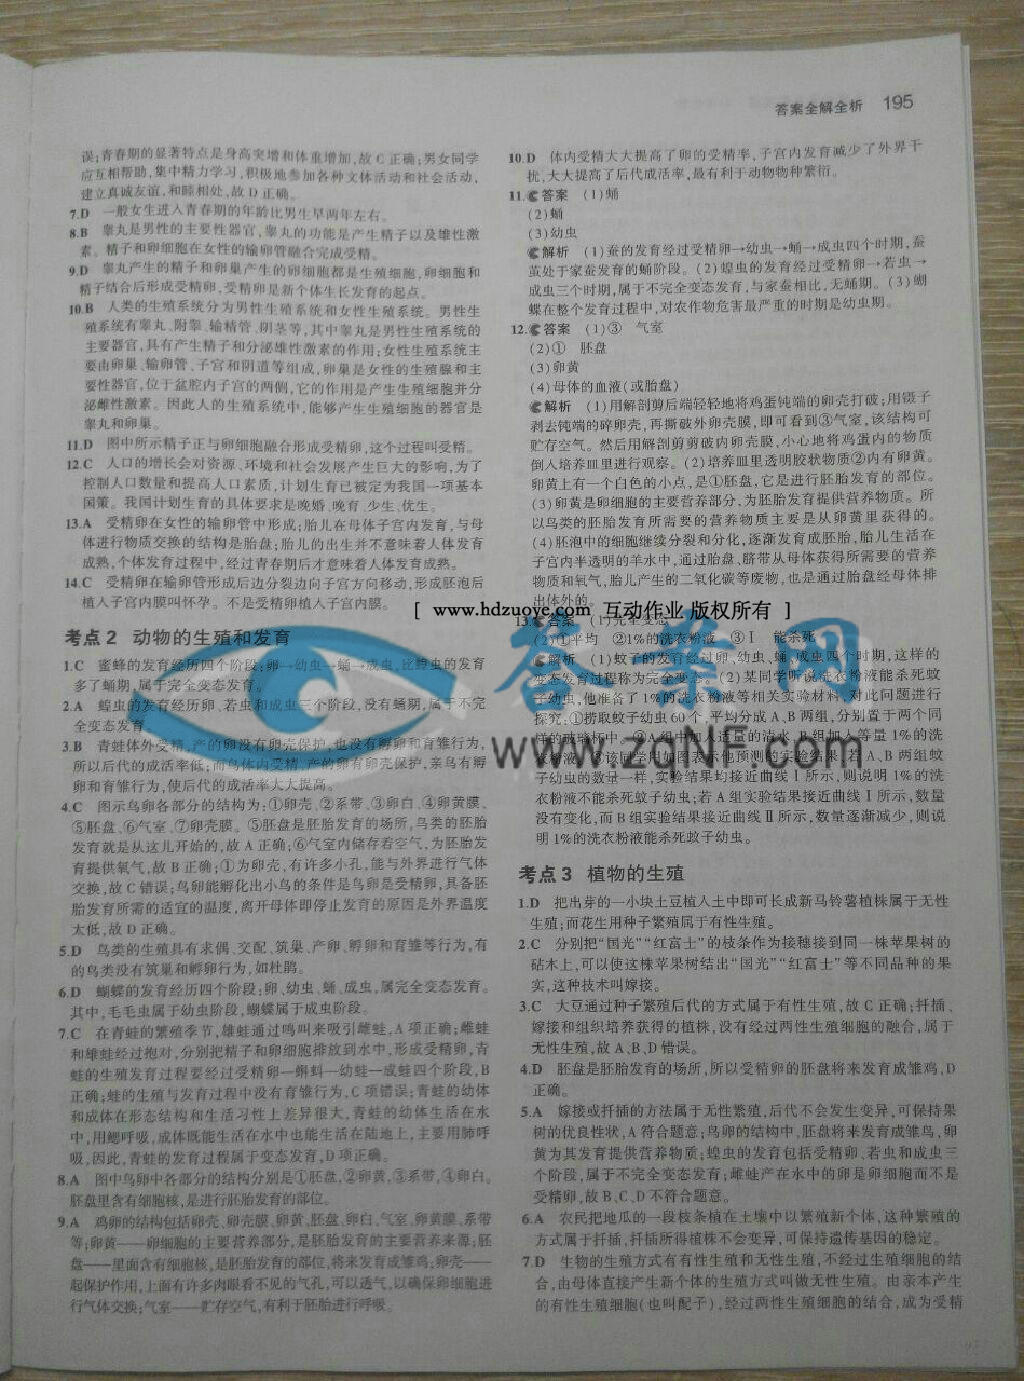 答案全解全析 195
误;青春期的显著特点是身高突增和体重增加,故C正确;男女同学
应互相帮助,集中精力学习,积极地参加各种文体活动和社会活动,
建立真诚友谊,和睦相处,故D正确。
7.D 一般女生进入青春期的年龄比男生早两年左右。
8.B 睾丸是男性的主要性器官,睾丸的功能是产生精子以及雄性激
素。精子和卵细胞在女性的输卵管融合完成受精。
9.D 睾丸产生的精子和卵巢产生的卵细胞都是生殖细胞,卵细胞和
精子结合后形成受精卵,受精卵是新个体生长发育的起点。
10.B 人类的生殖系统分为男性生殖系统和女性生殖系统。男性生
殖系统有睾丸、附睾、输精管、阴茎等,其中睾丸是男性生殖系统的
主要器官,具有产生精子和分泌雄性激素的作用;女性生殖系统主
要由卵巢、输卵管、子宫和阴道等组成,卵巢是女性的生殖腺和主
要性器官,位于盆腔内子宫的两侧,它的作用是产生生殖细胞并分
泌雌性激素。因此人的生殖系统中,能够产生生殖细胞的器官是
睾丸和卵巢。
11.D 图中所示精子正与卵细胞融合形成受精卵,这个过程叫受精。
12.C 人口的增长会对资源、环境和社会发展产生巨大的影响,为了
控制人口数量和提高人口素质,计划生育已被定为我国一项基本
国策。我国计划生育的具体要求是晚婚、晚育、少生、优生。
13.A 受精卵在女性的输卵管中形成;胎儿在母体子宫内发育,与母
体进行物质交换的结构是胎盘;胎儿的出生并不意味着人体发育
成熟,个体发育过程中,经过青春期后才意味着人体发育成熟。
14.C 受精卵在输卵管形成后边分裂边向子宫方向移动,形成胚泡后
植入子宫内膜叫怀孕。不是受精卵植入子宫内膜。
考点2 动物的生殖和发育
1.C 蜜蜂的发育经历四个阶段:卵→幼虫→蛹→成虫,比蝗虫的发育
多了蛹期,属于完全变态发育。
2.A 蝗虫的发育经历卵、若虫和成虫三个阶段,没有蛹期,属于不完
全变态发育。
3.B 青蛙体外受精,产的卵没有卵壳保护,也没有孵卵和育雏行为,
所以后代的成活率低;而鸟体内受精,产的卵有卵壳保护,亲鸟有孵
卵和育雏行为,使后代的成活率大大提高。
4.C 图示鸟卵各部分的结构为:①卵壳、②系带、③卵白、④卵黄膜、
⑤胚盘、⑥气室、⑦卵壳膜。⑤胚盘是胚胎发育的场所,鸟类的胚胎
发育就是从这儿开始的,故A正确;⑥气室内储存着空气,为胚胎发
育提供氧气,故B正确;①为卵壳,有许多小孔,能与外界进行气体
交换,故C错误;鸟卵能孵化出小鸟的条件是鸟卵是受精卵,具备胚
胎发育所需的适宜的温度,离开母体即停止发育的原因是外界温度
太低,故D正确。
5.D 鸟类的生殖具有求偶、交配、筑巢、产卵、孵卵和育雏等行为,有
的鸟类没有筑巢和孵卵行为,如杜鹃。
6.D 蝴蝶的发育经历四个阶段:卵、幼虫、蛹、成虫,属完全变态发育。
其中,毛毛虫属于幼虫阶段,蝴蝶属于成虫阶段。
7.C 在青蛙的繁殖季节,雄蛙通过鸣叫来吸引雌蛙,A项正确;雌蛙
和雄蛙经过抱对,分别把精子和卵细胞排放到水中,形成受精卵,青
蛙的生殖发育过程要经过受精卵—蝌蚪—幼蛙—成蛙四个阶段,B
正确;蛙的生殖与发育过程中没有育雏行为,C项错误;青蛙的幼体
和成体在形态结构和生活习性上差异很大,青蛙的幼体生活在水
中,用鳃呼吸,成体既能生活在水中也能生活在陆地上,主要用肺呼
吸,因此,青蛙的发育过程属于变态发育,D项正确。
8.A 图中鸟卵中各部分的结构分别是①胚盘,②卵黄,③系带,④卵白。
胚盘里含有细胞核,是进行胚胎发育的部位。
9.A 鸡卵的结构包括卵壳、卵壳膜、卵黄、胚盘、卵白、气室、卵黄膜、系带
等;卵黄——卵细胞的主要营养部分,是胚胎发育的主要营养来源;胚
盘——里面含有细胞核,是胚胎发育的部位,将来发育成雏鸡;卵壳——
起保护作用,上面有许多肉眼看不见的气孔,可以透气,以确保卵细胞进
行气体交换;气室——贮存空气,有利于胚胎进行呼吸。
10.D 体内受精大大提高了卵的受精率,子宫内发育减少了外界干
扰,大大提高了后代成活率,最有利于动物物种繁衍。
11.答案 (1)蛹
(2)蛹
(3)幼虫
解析 (1)蚕的发育经过受精卵→幼虫→蛹→成虫四个时期,蚕
茧处于家蚕发育的蛹阶段。(2)蝗虫的发育经过受精卵→若虫→
成虫三个时期,属于不完全变态发育,与家蚕相比,无蛹期。(3)蝴
蝶在整个发育过程中,对农作物危害最严重的时期是幼虫期。
12.答案 (1)③ 气室
(2)① 胚盘
(3)卵黄
(4)母体的血液(或胎盘)
解析 (1)用解剖剪后端轻轻地将鸡蛋钝端的卵壳打破;用镊子
剥去钝端的碎卵壳,再撕破外卵壳膜,即可看到③气室,该结构可
贮存空气。然后用解剖剪剪破内卵壳膜,小心地将鸡蛋内的物质
倒入培养皿里进行观察。(2)培养皿里透明胶状物质②内有卵黄。
卵黄上有一个白色的小点,是①胚盘,它是进行胚胎发育的部位。
(3)卵黄是卵细胞的主要营养部分,为胚胎发育提供营养物质。所
以鸟类的胚胎发育所需要的营养物质主要是从卵黄里获得的。
(4)胚泡中的细胞继续分裂和分化,逐渐发育成胚胎,胎儿生活在
子宫内半透明的羊水中,通过胎盘、脐带从母体获得所需要的营养
物质和氧气,胎儿产生的二氧化碳等废物,也是通过胎盘经母体排
出体外的。
[ www.hdzuoye.com 互动作业 版权所有 ]
13.答案 (1)完全变态
(2)①平均 ②1%的洗衣粉液 ③Ⅰ 能杀死
解析 (1)蚊子的发育经过卵、幼虫、蛹、成虫四个时期,这样的
变态发育过程称为完全变态。(2)某同学听说洗衣粉液能杀死蚊
子幼虫,他准备了1%的洗衣粉液等相关实验材料,对此问题进行
探究:①捞取蚊子幼虫60个,平均分成A、B两组,分别置于两个同
样的玻璃杯中。②A组中加入适量的清水,B组加入等量1%的洗
衣粉液。③该同学以如图表示他预测的实验结果:若A、B两组蚊
子幼虫的数量一样,实验结果均接近曲线Ⅰ所示,则说明1%的洗
衣粉液不能杀死蚊子幼虫;若A组实验结果接近曲线Ⅰ所示,数量
没有变化,而B组实验结果接近曲线Ⅱ所示,数量逐渐减少,则说
明1%的洗衣粉液能杀死蚊子幼虫。
答案网
www.zqNF.com
考点3 植物的生殖
1.D 把出芽的一小块土豆植入土中即可长成新马铃薯植株属于无性
生殖;而花生用种子繁殖属于有性生殖。
2.C 分别把“国光”“红富士”的枝条作为接穗接到同一株苹果树的
砧木上,可以使这株苹果树结出“国光”“红富士”等不同品种的果
实,这种技术叫嫁接。
3.C 大豆通过种子繁殖后代的方式属于有性生殖,故C正确;扦插、
嫁接和组织培养获得的植株,没有经过两性生殖细胞的融合,属于
无性生殖,故A、B、D错误。
4.D 胚盘是胚胎发育的场所,所以受精卵的胚盘将来发育成雏鸡,D
正确。
5.A 嫁接或扦插的方法属于无性繁殖,后代不会发生变异,可保持果
树的优良性状,A符合题意;鸟卵的结构中,胚盘将来发育成雏鸟,卵
黄为其发育提供营养物质;蝗虫的发育包括受精卵、若虫和成虫三
个阶段,属于不完全变态发育;雌蛙产在水中的卵是卵细胞而不是
受精卵,故B、C、D不符合题意。
6.A 农民把地瓜的一段枝条植在土壤中以繁殖新个体,这种繁殖的
方式属于扦插,扦插所得植株不会变异,可保持遗传基因的稳定。
7.D 生物的生殖方式有有性生殖和无性生殖,不经过生殖细胞的结
合,由母体直接产生新个体的生殖方式叫做无性生殖。由亲本产生
的有性生殖细胞(也叫配子),经过两性生殖细胞的结合,成为受精